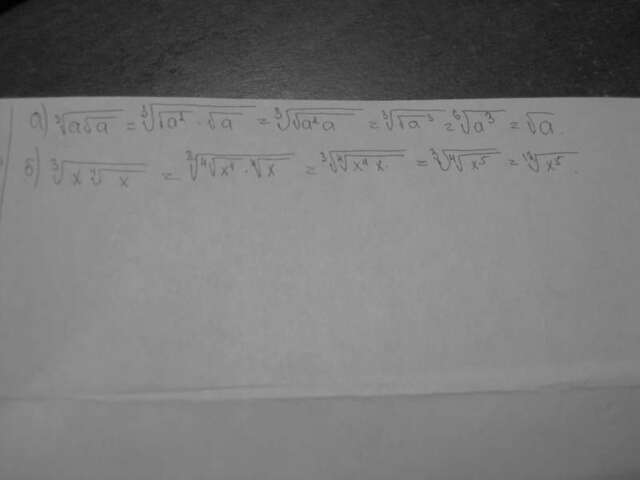 а) ∛(a√a) = ∛(√a² · √a) = ∛(√(a²a)) = ∛(√a³) = ⁶√a³ = √a.
б) ∛(x ⁴√x) = ∛(⁴√x⁴ · ⁴√x) = ∛(⁴√(x⁴x)) = ∛(⁴√x⁵) = ¹²√x⁵.